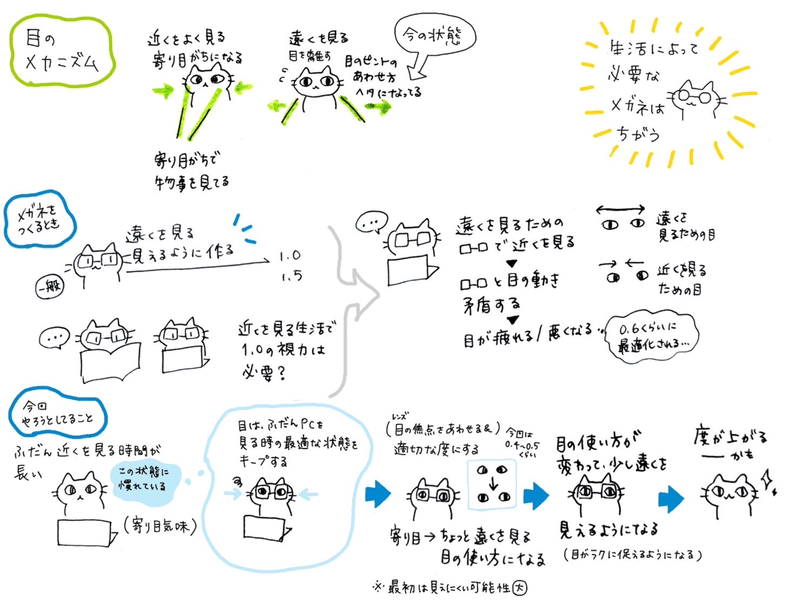 目の
メカニズム
近くをよく見る
寄り目がちになる
寄り目がちで
物事を見てる
遠くを見る
目を離す
目のピントの
あわせ方
ヘタになってる
今の状態
生活によって
必要な
メガネは
ちがう
メガネを
つくるとき
遠くを見る
見えるように作る
1.0
1.5
一般
近くを見る生活で
1.0の視力は
必要?
遠くを見るための
で近くを見る
と目の動き
矛盾する
目が疲れる/悪くなる…
0.6くらいに
最適化される…
遠くを
見るための目
近くを見る
ための目
今回
やろうとしてること
ふだん近くを見る時間が
長い
この状態に
慣れている
(寄り目気味)
目は、ふだんPCを
見る時の最適な状態を
キープする
レンズ
(目の焦点をあわせる&)
適切な度にする
今回は
0.4〜0.5
くらい
寄り目→ちょっと遠くを見る
目の使い方になる
※最初は見えにくい可能性大
目の使い方が
変わって、少し遠くを
見えるようになる
(目がラクに捉えるようになる)
度が上がる
かも